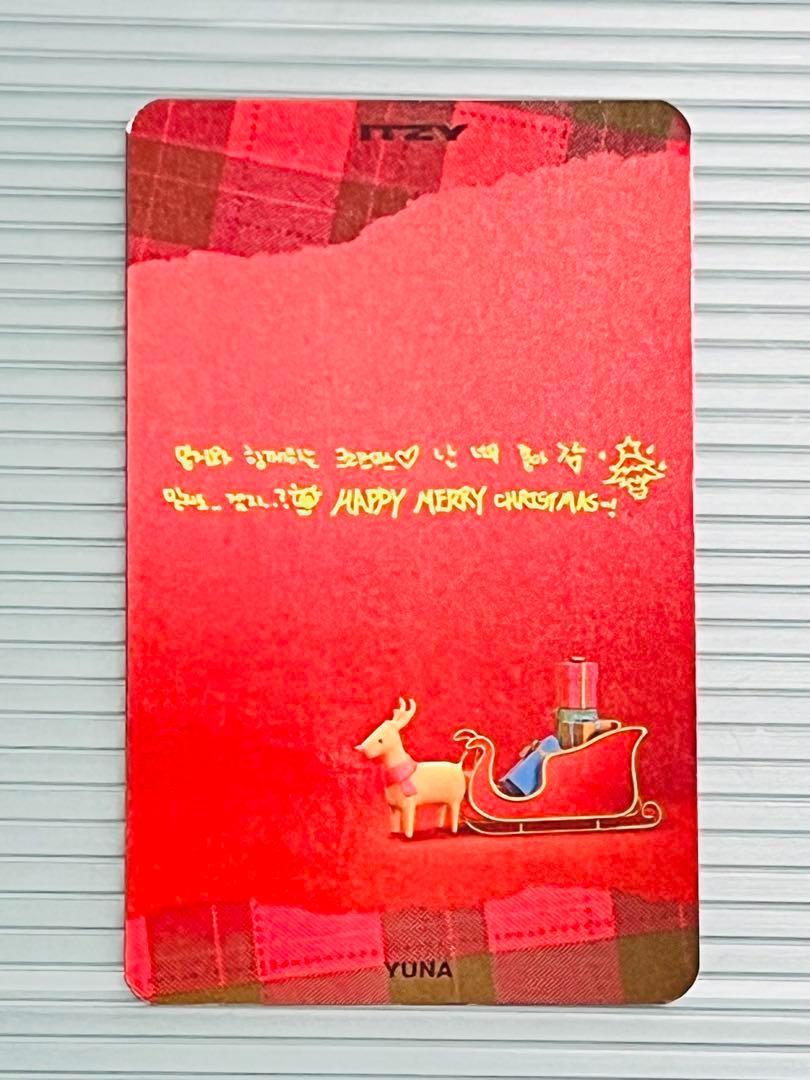 ITZY
믿지와 함께하는 크리스마스♡ 난 너무 좋아
믿지도.. 그렇지..? HAPPY MERRY CHRISTMAS~!
YUNA